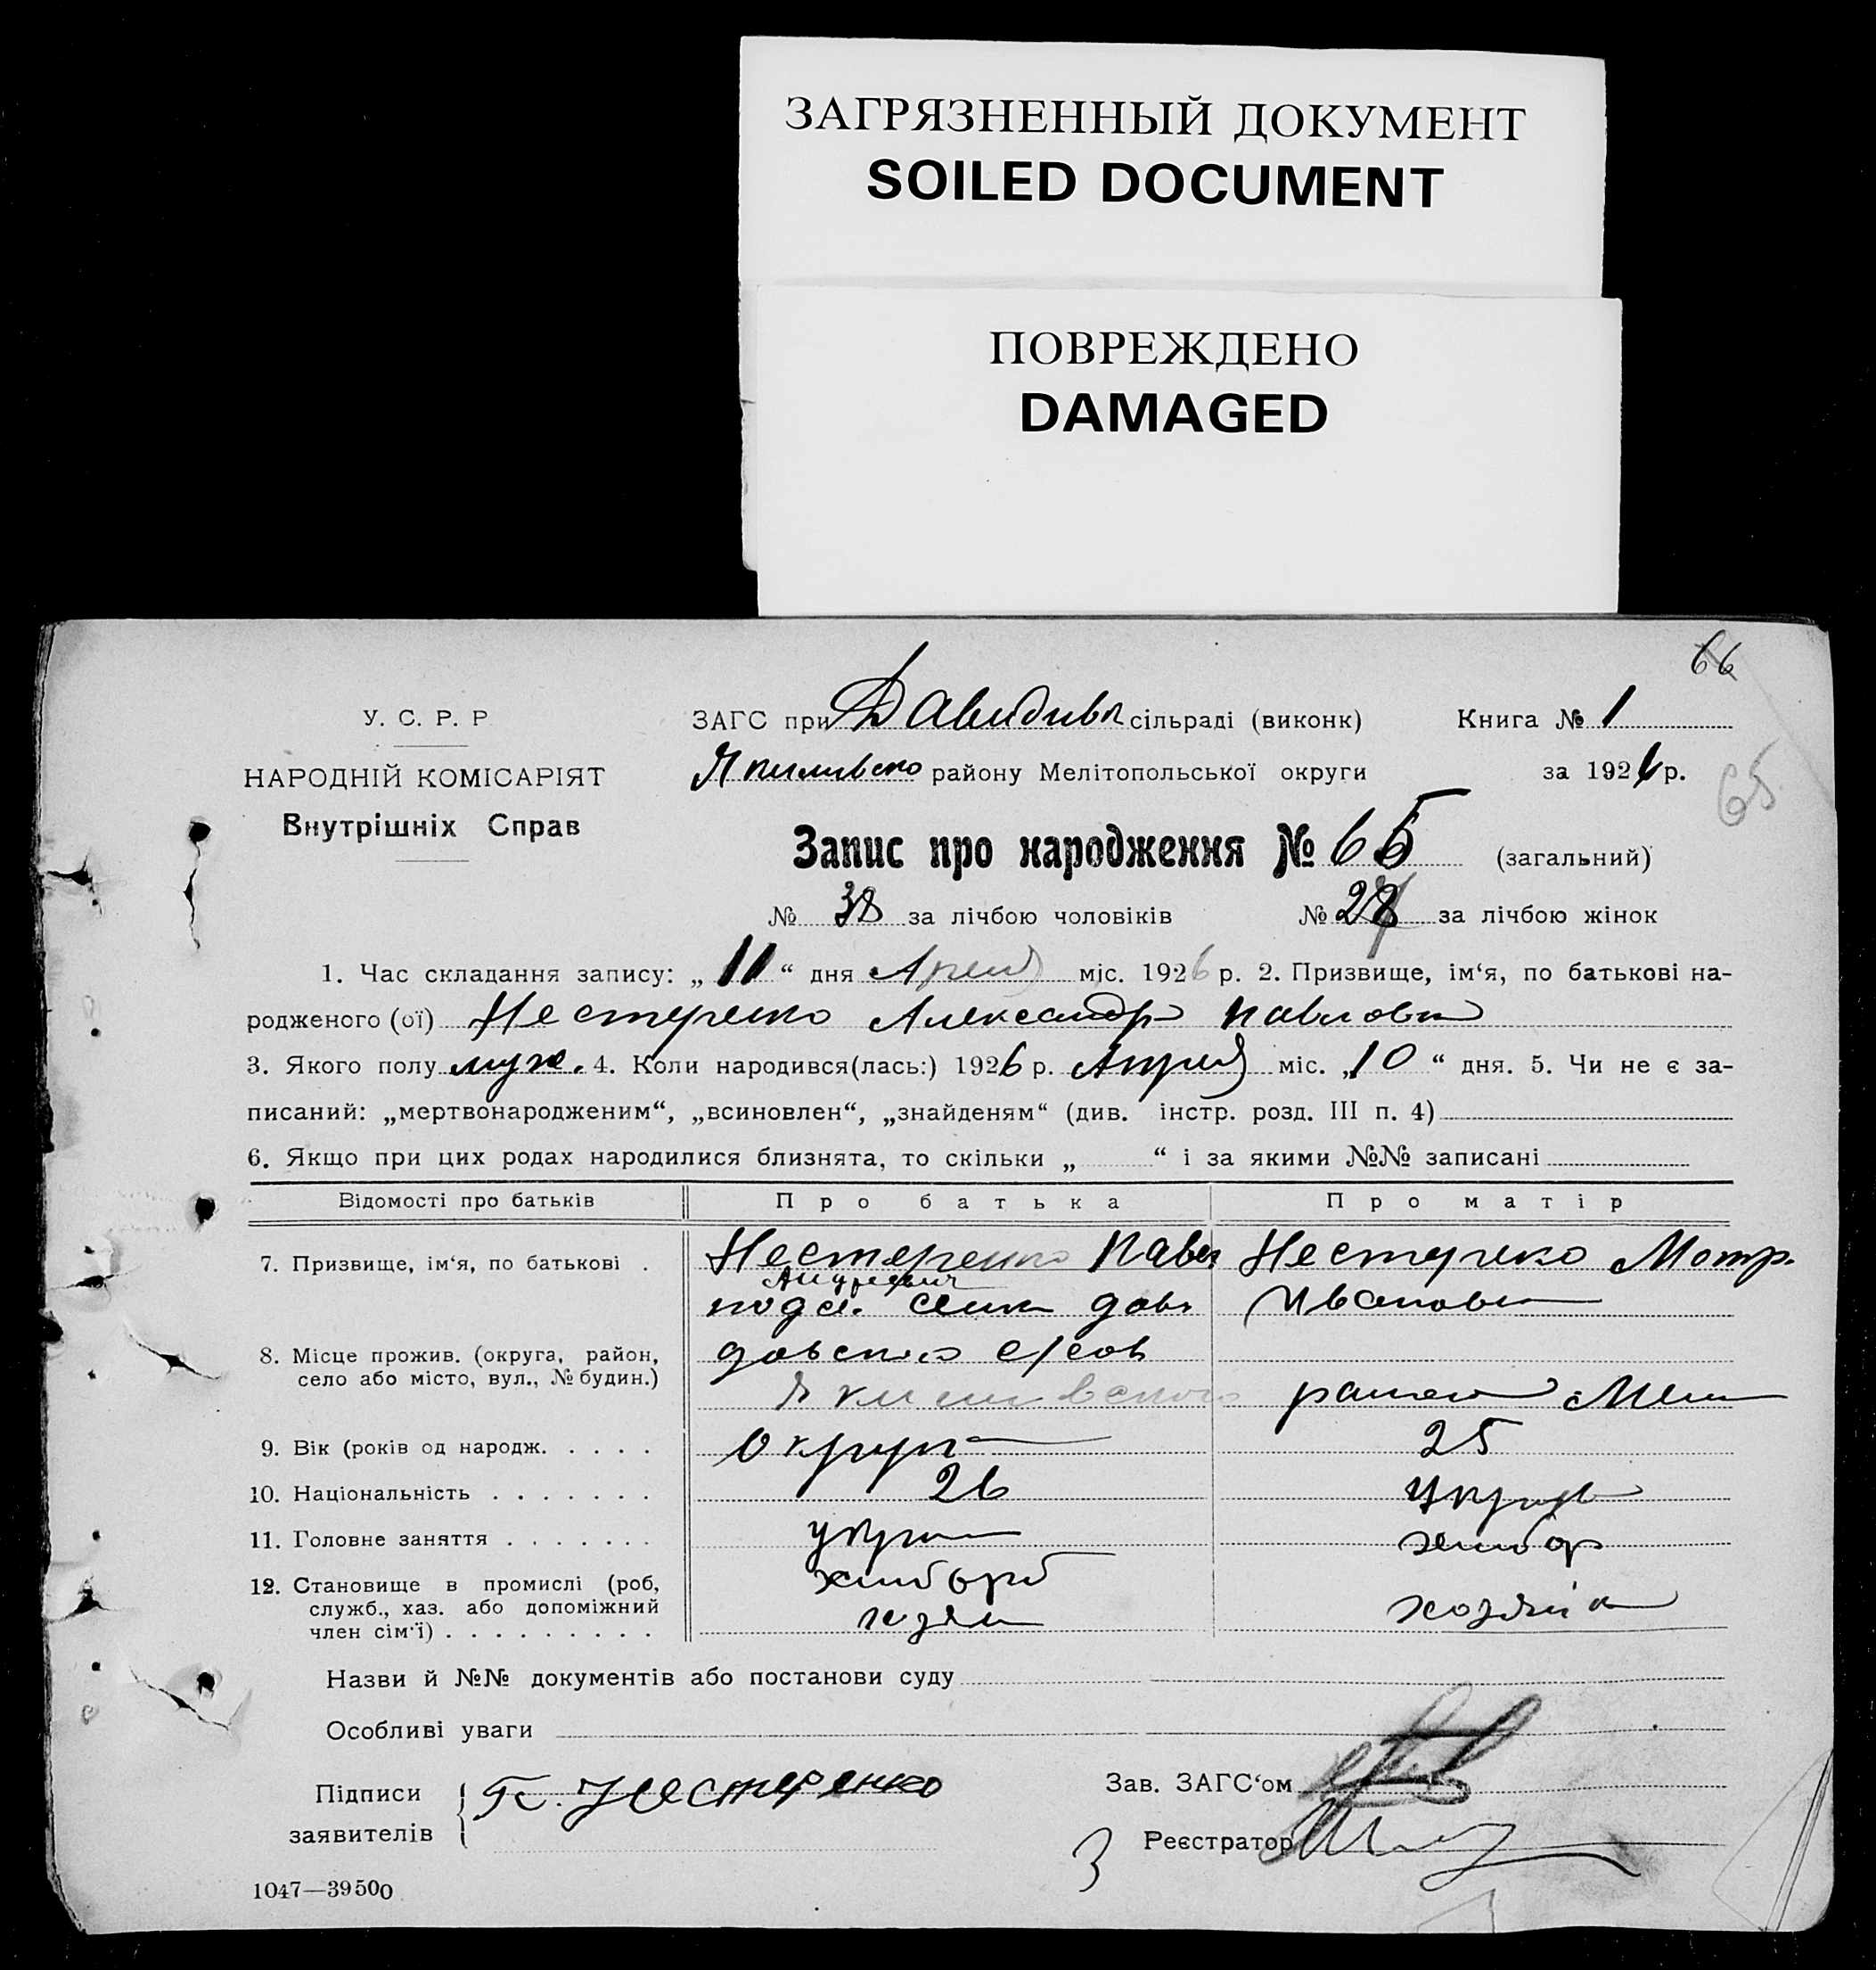 ЗАГРЯЗНЕННЫЙ ДОКУМЕНТ
SOILED DOCUMENT
ПОВРЕЖДЕНО
DAMAGED
66
У. С. Р. Р
НАРОДНІЙ КОМІСАРІЯТ
Внутрішніх Справ
ЗАГС при Давидивк сільраді (виконк) Книга № 1
Якимивско району Мелітопольської округи за 1926 р.
65
Запис про народження № 65 (загальний)
№ 38 за лічбою чоловіків № за лічбою жінок
1. Час складання запису: „ 11 “ дня Апрель міс. 1926 р. 2. Призвище, ім‘я, по батькові на-
родженого (ої) Нестеренко Александр Павлович
3. Якого полу муж. 4. Коли народився(лась:) 1926 р. Апрель міс. „10 “ дня. 5. Чи не є за-
писаний: „мертвонародженим“, „всиновлен“, „знайденям“ (див. інстр. розд. III п. 4)
6. Якщо при цих родах народилися близнята, то скільки „ “ і за якими №№ записані
Відомості про батьків Про батька Про матір
7. Призвище, ім‘я, по батькові . Нестеренко Павел Нестеренко Мотр.
Андреевич
Ивановн
8. Місце прожив. (округа, район,
село або місто, вул., № будин.)
Якимивского Мели
округи
9. Вік (років од народж. . . . . 26 25
10. Національність . . . . . . . украин украин
11. Головне заняття . . . . . . . хлибороб хлибор
12. Становище в промислі (роб,
служб., хаз. або допоміжний
член сім‘ї) . . . . . . . . . хозяин хозяйк
Назви й №№ документів або постанови суду
Особливі уваги
Підписи
заявителів
П. Нестеренко
Зав. ЗАГС‘ом
3 Реєстратор
1047—39500